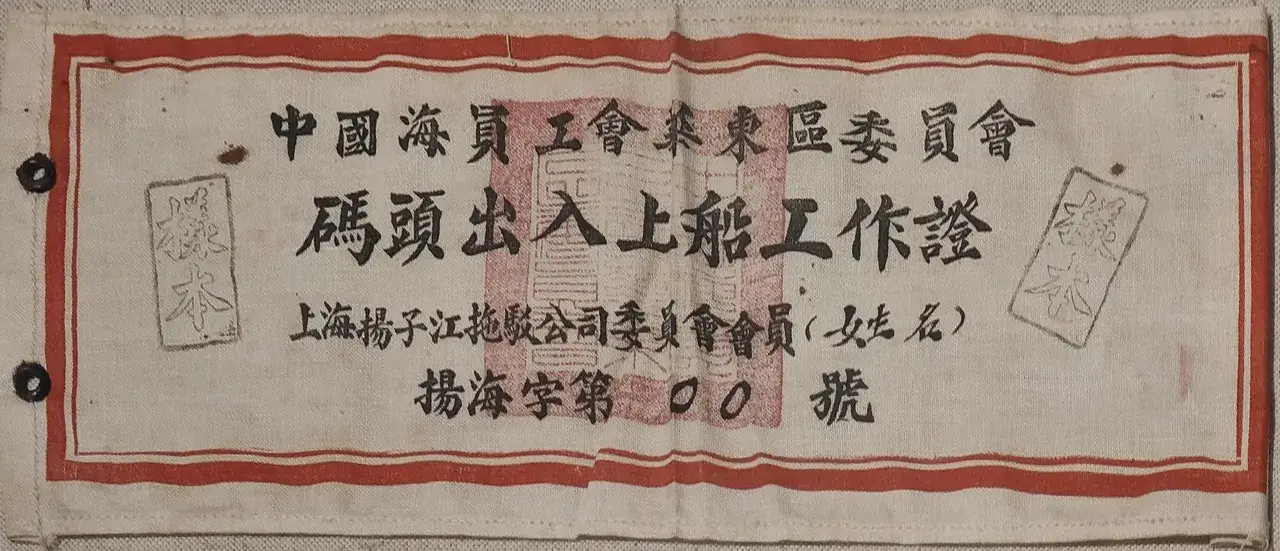 中國海員工會華東區委員會
碼頭出入上船工作證
上海揚子江拖駁公司委員會會員(姓名)
揚海字第 00 號
樣本
樣本